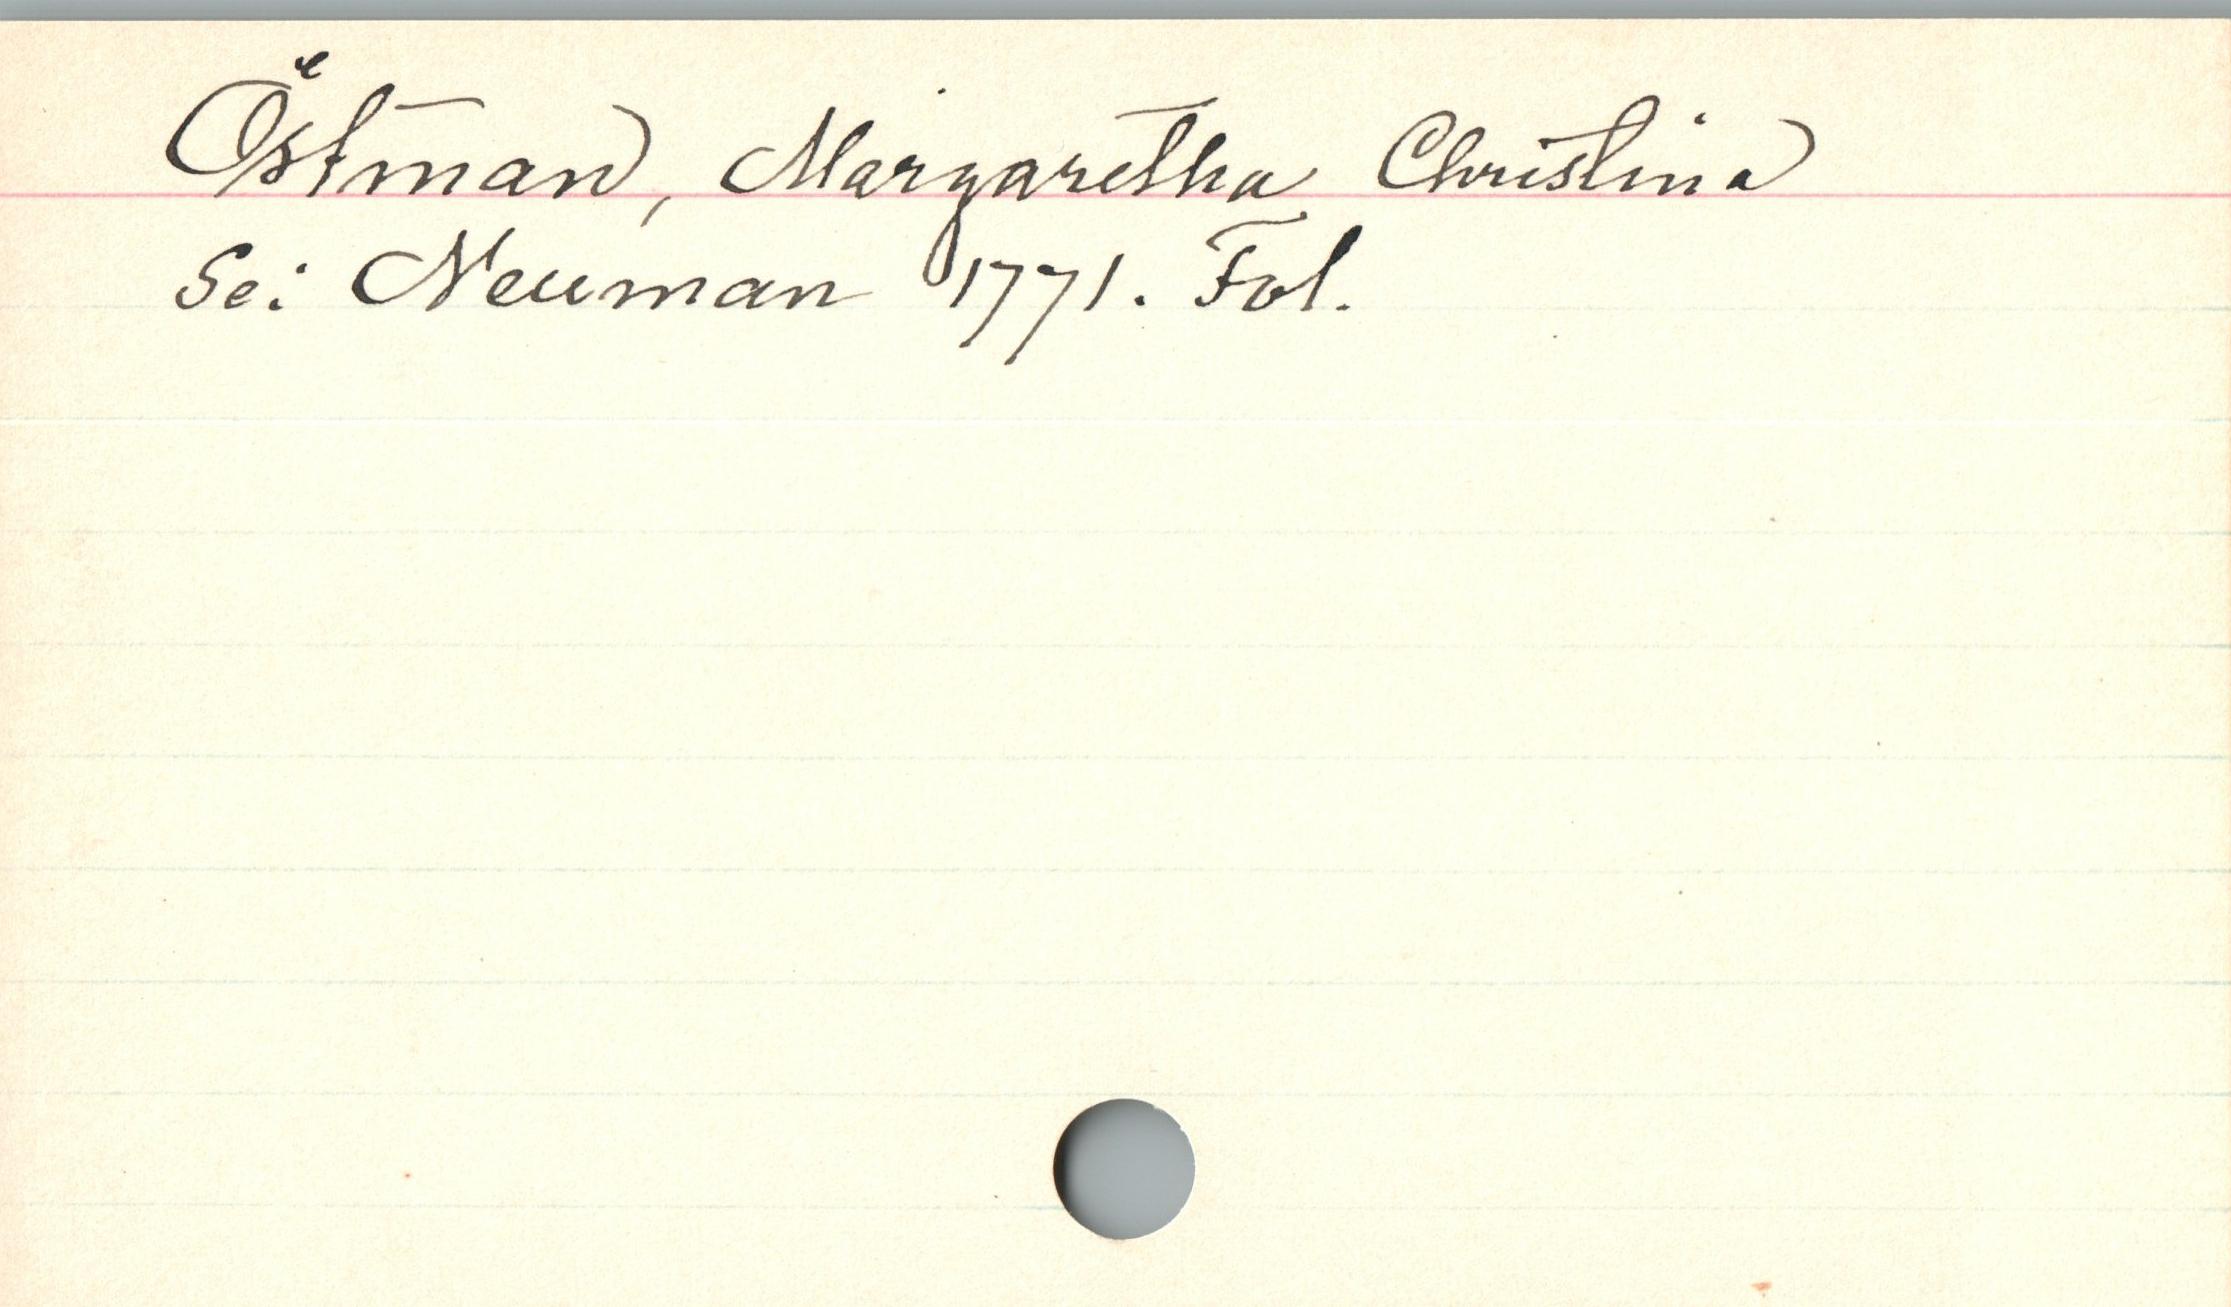 Östman, Margaretha Christina
Se: Neuman 1771. Fol.